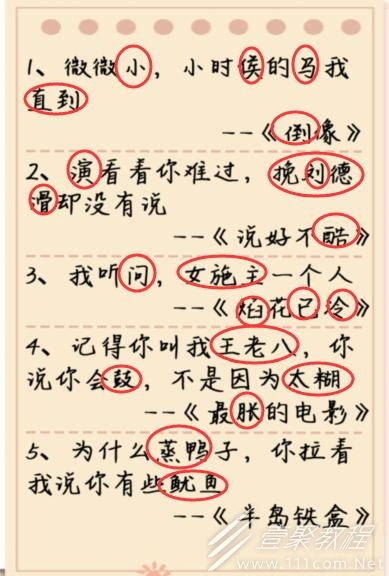 1、微微小，小时侯的马我
直到
--《倒像》
2、演看看你难过，挽刘德
滑却没有说
--《说好不酷》
3、我听问，女施主一个人
--《焰花已冷》
4、记得你叫我王老八，你
说你会鼓，不是因为太糊
--《最胀的电影》
5、为什么蒸鸭子，你拉看
我说你有些鱿鱼
--《半岛铁盒》
壹聚教程
www.111com.Net